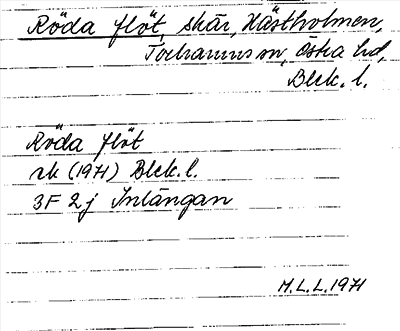 Röda flöt, skär, Hästholmen,
Torhamns sn, Östra hd,
Blek. l.
Röda flöt
rk (1971) Blek. l.
3F 2j Inlängan
M.L.L. 1971